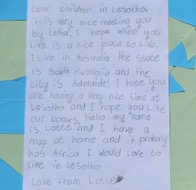 Dear children in Lesotho,
it is very nice meeting you
by letter. I hope where you
live is a nice place to live.
I live in Australia the state
is South Australia and the
city is Adelaide! I hope you
are having a very nice time at
Lesotho and I hope you like
our books. Hello my name
is Lotte and I have a
map at home and it probaly
has Africa I would love to
live in Lesotho
Love from Lotte